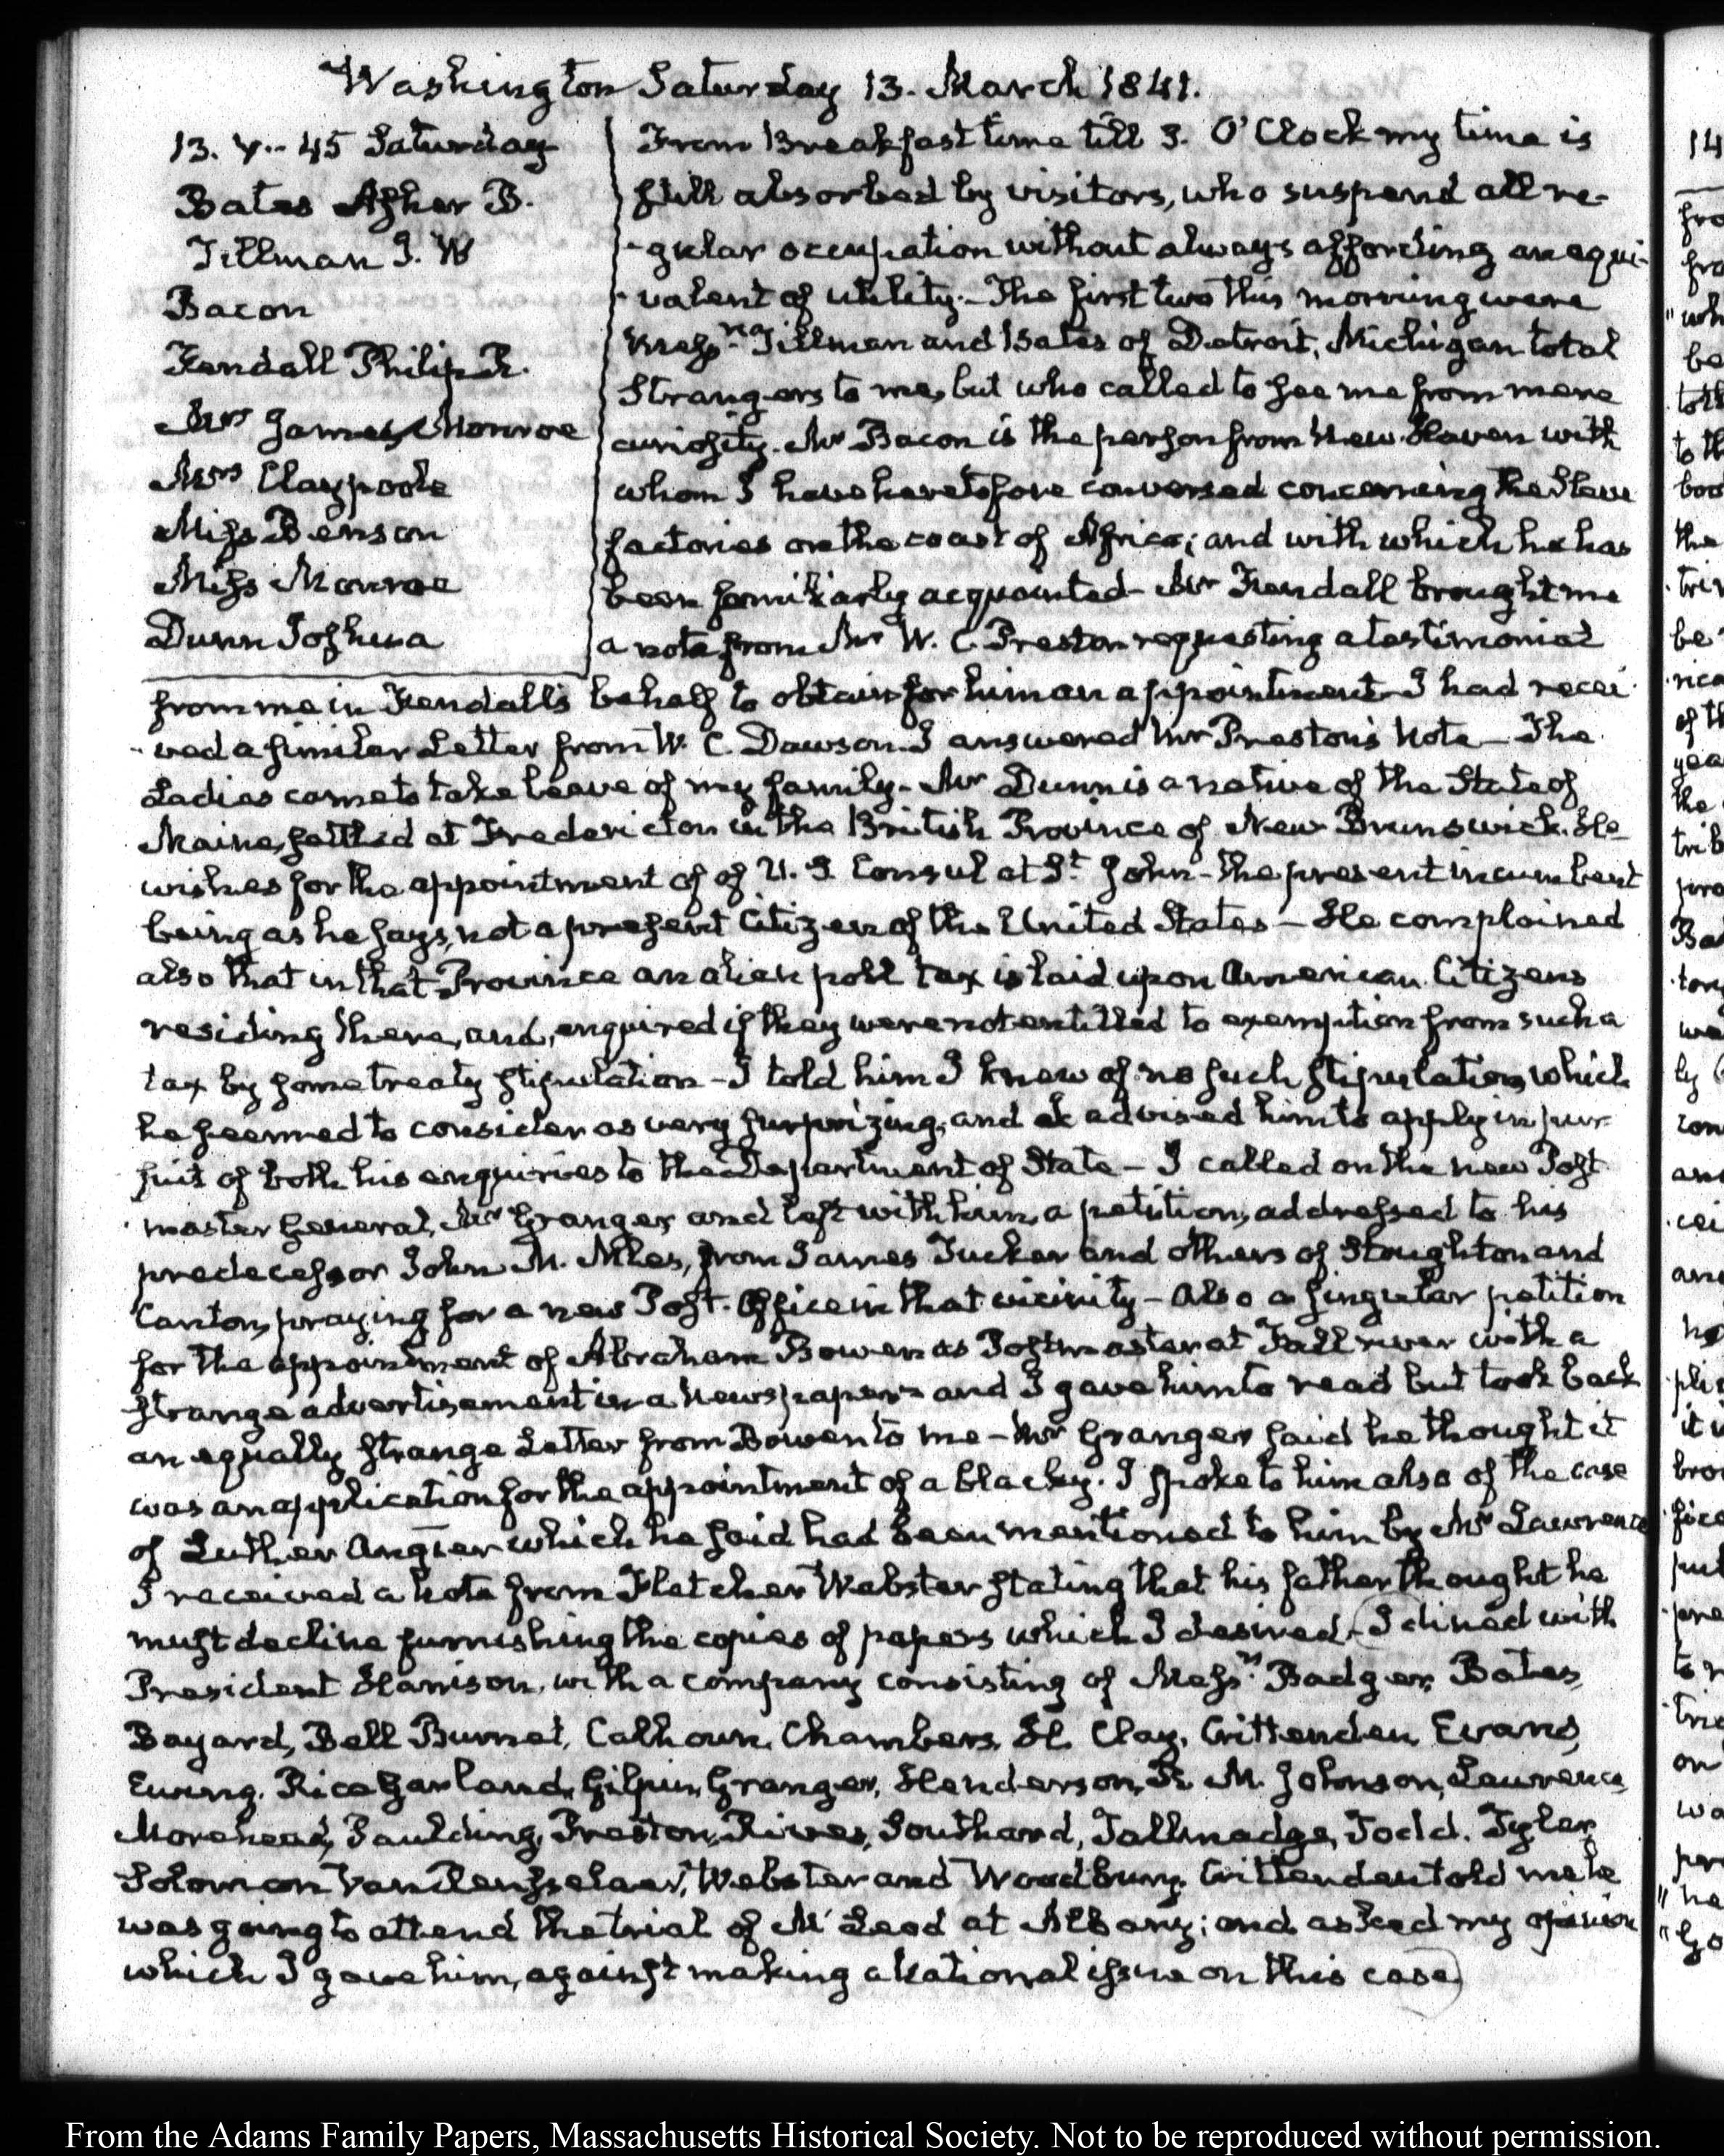 Washington Saturday 13. March 1841.
13. 4.. 45 Saturday
Bates Asher B.
Tillman J. W
Bacon
Fendall Philip R.
Mrs James Monroe
Mrs Claypoole
Miss Benson
Miss Monroe
Dunn Joshua
From Breakfast time till 3. O'Clock my time is
still absorbed by visitors, who suspend all re-
-gular occupation without always affording an equi-
-valent of utility.- The first two this morning were
Messrs Tillman and Bates of Detroit, Michigan total
strangers to me, but who called to see me from mere
curiosity. Mr Bacon is the person from New-Haven with
whom I have heretofore conversed concerning the Slave
factories on the coast of Africa; and with which he has
been familiarly acquainted- Mr Fendall brought me
a note from Mr W. C. Preston requesting a testimonial
from me in Fendall's behalf to obtain for him an appointment- I had recei-
-ved a similar Letter from W. C. Dawson. I answered Mr Preston's Note- The
Ladies came to take leave of my family- Mr Dunn is a native of the State of
Maine, settled at Fredericton in the British Province of New-Brunswick. He
wishes for the appointment of of U. S. Consul at St John- the present incumbent
being as he says, not a present Citizen of the United States- He complained
also that in that Province an alien poll tax is laid upon American Citizens
residing there, and, enquired if they were not entitled to exemption from such a
tax by some treaty stipulation- I told him I knew of no such stipulation, which
he seemed to consider as very surprizing, and advised him to apply in pur-
suit of both his enquiries to the Department of State- I called on the new Post
master General, Mr Granger and left with him, a petition, addressed to his
predecessor John M. Niles, from James Tucker and others of Stoughton and
Canton, praying for a new Post-Office in that vicinity- Also a singular petition
for the appointment of Abraham Bowen as Postmaster at Fall river with a
strange advertisement in a Newspaper- and I gave him to read but took back
an equally strange Letter from Bowen to me- Mr Granger said he thought it
was an application for the appointment of a blackey. I spoke to him also of the case
of Luther Angier which he said had been mentioned to him by Mr Lawrence
I received a note from Fletcher Webster stating that his father thought he
must decline furnishing the copies of papers which I desired- I dined with
President Harrison, with a company consisting of Messrs Badger, Bates,
Bayard, Bell Burnet, Calhoun, Chambers, H. Clay, Crittenden, Evans,
Ewing, Rice Garland, Gilpin, Granger, Henderson, R. M. Johnson, Lawrence,
Morehead, Paulding, Preston, Rives, Southard, Tallmadge, Todd, Tyler,
Solomon Van Rensselaer, Webster and Woodbury. Crittenden told me he
was going to attend the trial of McLeod at Albany; and asked my opinion
which I gave him, against making a National issue on this case
From the Adams Family Papers, Massachusetts Historical Society. Not to be reproduced without permission.